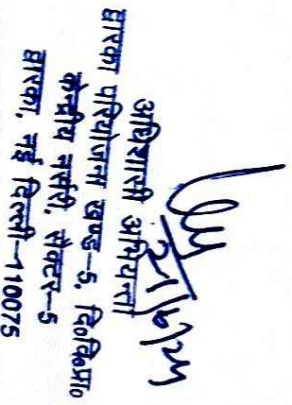 21/6/24
अधिशासी अभियन्ता
द्वारका परियोजना खण्ड-5, दि०वि०प्रा०
केन्द्रीय नर्सरी, सेक्टर-5
द्वारका, नई दिल्ली-110075